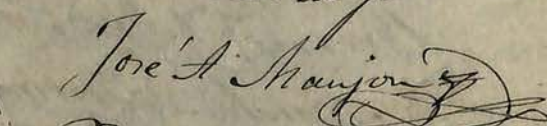 José A Manjon